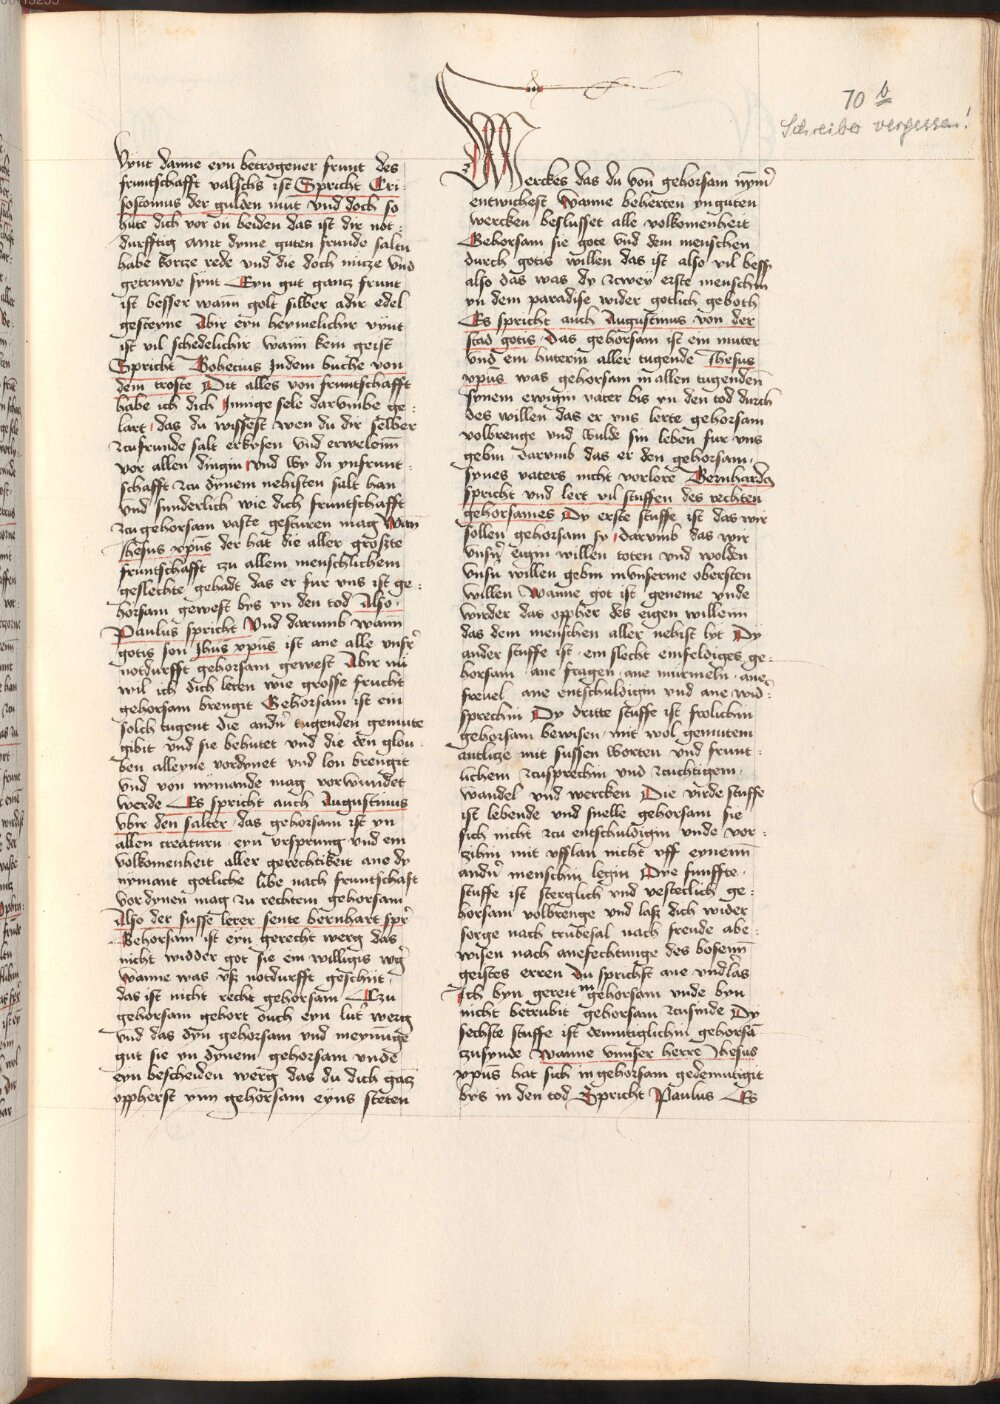 70 b
Schreiber vergessen!
vynt danne eyn betrogener frunt des
fruntschafft valschs ist Spricht Cri-
sostomus der gulden mut vnd doch so
hute dich vor on beiden das ist dir not-
durfftig mit dyme guten frunde saltu
habe kortze rede vnd die doch nutze vnd
getruwe synt Eyn gut gantz frunt
ist besser wann golt silber adir edel
gesteyne Abir eyn heymelichir vynt
ist vil schedelichir wann kem geist
Spricht Bohecius Indem buche von
dem troste Dit alles von fruntschafft
habe ich dich Innige sele darvmbe ge-
lart das du wissest wen du dir selber
zcufrunde salt erkysen vnd erwelenn
vor allen dingin vnd wy du ynfrunt-
schafft zcu dynem nehisten salt han
vnd sunderlich wie dich fruntschafft
zcu gehorsam vaste gesturen mag Wan
Ihesus xpus der hat die aller groszte
fruntschafft zu allem menschlichem
geslechte gehadt das er fur vns ist ge-
horsam gewest bys yn den tod Also
Paulus spricht Vnd darumb wann
gotis son Ihus xpus ist ane alle vnser
notdurfft gehorsam gewest Abir nu
wil ich dich leren wie grosse frucht
gehorsam brengit Gehorsam ist ein
solch tugent die andern tugenden gemute
gibit vnd sie behutet vnd die den glou-
ben alleyne vordynet vnd lon brengit
vnd von nymande mag vorwundet
werde Es spricht auch Augustinus
vbir den salter das gehorsam ist yn
allen creaturn eyn vrsprung vnd ein
volkomenheit aller gerechtikeit ane dy
nymant gotliche libe nach fruntschaft
vordynen mag zu rechtem gehorsam
Also der susse lerer sente bernhart spr
Gehorsam ist eyn gerecht werg das
nicht widder got sie em willigis wg
wanne was vß notdurfft geschiit
das ist nicht recht gehorsam Czu
gehorsam gehort ouch eyn luter werg
vnd das dyn gehorsam vnd meynunge
gut sie yn dynem gehorsam vnde
eyn bescheiden werg das du dich gantz
oppherst vnn gehorsam eyns steten
Werckes das du von gehorsam nymer
entwichest Wanne beherten ynguten
wercken beslusset alle volkomenheit
Gehorsam sie gote vnd dem menschen
durch gotis willen das ist also vil besser
also das was dy zcwey erste menschin
yn dem paradise wider gotlich geboth
Es spricht auch Augustinus von der
stad gotis das gehorsam ist ein muter
vnd ein huterin aller tugende Ihesus
xpus was gehorsam in allen tugenden
synem ewigin vater bis yn den tod durch
des willen das er vns lerte gehorsam
volbrenge vnd wulde sin leben fur vns
gebin darumb das er den gehorsam
synes vaters nicht vorlore Bernhardus
spricht vnd lert vil stuffen des rechten
gehorsames Dy erste stuffe ist das wir
sollen gehorsam sy darumb das wir
vnsern eigin willen toten vnd wolden
vnsern willen gebin in vnserme obersten
willen Wanne got ist geneme vnde
wirder das oppher des eigen willenn
das dem menschen aller nehist lyt Dy
ander stuffe ist ein slecht einfeldiges ge-
horsam ane fragen ane murmeln ane
freuel ane entschuldigin vnd ane wid-
sprechin Dy dritte stuffe ist frolichin
gehorsam bewisen mit wol gemutem
antlitze mit sussen worten vnd frunt-
lichem zcusprechin vnd zcuchtigem
wandel vnd wercken Die virde stuffe
ist lebende vnd snelle gehorsam sie
sich nicht zcu entschuldigin vnde vor-
zihin mit vfflan nicht vff eynenn
andern menschin legin Dye funffte
stuffe ist sterglich vnd vesteclich ge-
horsam volbrenge vnd laß dich wider
sorge nach trubesal nach freude abe-
wisen nach anefechtunge des bosenn
geistes erren Du sprichst ane vndlas
Ich byn gereit in gehorsam vnde byn
nicht betrubit gehorsam zcusinde Dy
sechste stuffe ist demutiglichin gehorsam
zcusynde Wanne vnnser herre Ihesus
xpus hat sich in gehorsam gedemutigit
bys in den tod Spricht Paulus Es